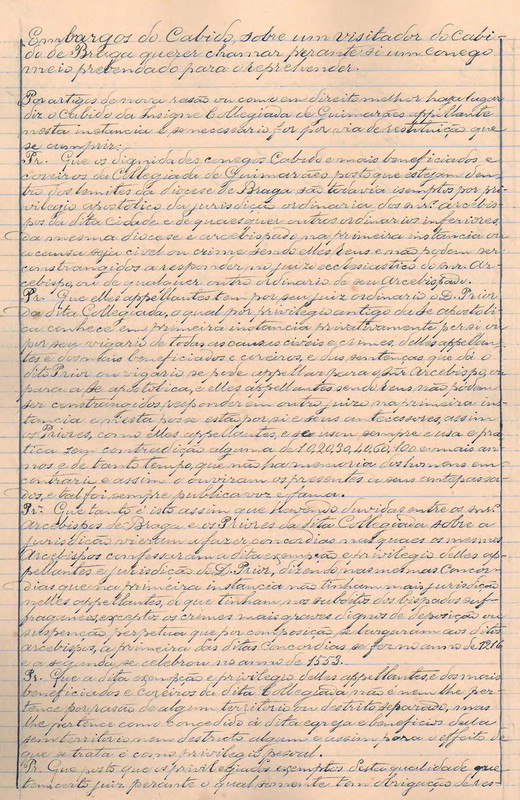 Embargos do Cabido, sobre um visitador do Cabi-
do de Braga querer chamar perante si um conego
meio prebendado para o reprehender.
Por artigos de nova rasão ou como em direito melhor haja lugar
diz o Cabido da Insigne Collegiada de Guimarães appellante
nesta instancia e se necessario for por via de restituição que
se cumprir:
Pr. Que os dignidades conegos Cabido e mais beneficiados e
coreiros da Collegiada de Guimarães posto que estejam den-
tro dos limites da diocese de Braga são todavia isemptos por pri-
vilegio apostolico da jurisdição ordinaria dos snr.es arcebis-
pos da dita cidade e de quaesquer outros ordinarios inferiores,
da mesma diocese e arcebispado, na primeira instancia ou
a causa seja civel ou crime sendo elles reus e não podem ser
constrangidos a responder no juizo ecclesiastico do snr. Ar-
cebispo, ou de qualquer outro ordinario de seu Arcebispado.
Pr. Que elles appellantes tem por seu juiz ordinario o D. Prior
da dita Collegiada, o qual por privilegio antigo da sé apostoli-
ca conhece em primeira instancia privativamente per si ou
por seu vigario de todas as causas civeis e crimes, delles appellan-
tes e dos mais beneficiados e coreiros, e das sentenças que dá o
dito Prior ou vigario se pode appellar para o snr. Arcebispo, ou
para a Sé apostolica, e elles appellantes sendo reus não podem
ser constrangidos responder em outro juizo na primeira ins-
tancia e nesta posse estão por si e seus antecessores, assim
os Priores, como elles appellantes, e se usou sempre e usa e pra-
tica sem contradição alguma de 10,20,30,40,60,100 e mais an-
nos e de tanto tempo, que não ha memoria dos homens em
contrario e assim o ouviram os presentes a seus antepassa-
dos, e tal foi sempre publica voz e fama.
Pr. Que tanto é isto assim que havendo duvidas entre os snr.es
Arcebispos de Braga e os Priores da dita Collegiada sobre a
jurisdição vieram a fazer concordias nas quaes os mesmos
Arcebispos confessaram a dita exempção e privilegio delles ap-
pellantes e jurisdição do D. Prior, dizendo nas mesmas Concor-
dias que na primeira instancia não tinham mais jurisdição
nelles appellantes, do que tinham nos subditos dos bispados suf-
fraganeos, exceptos os crimes mais graves dignos de deposição ou
suspenção perpetua que por composição se largaram aos ditos
arcebispos, a primeira das ditas Concordias se fez no anno de 1216
e a segunda se celebrou no anno de 1553.
Pr. Que a dita exempção e privilegio delles appellantes, e dos mais
beneficiados e coreiros da dita Collegiada não é nem lhe per-
tence por rasão de algum territorio ou destrito separado, mas
lhe pertence como concedido á dita egreja e beneficios della
sem territorio nem destricto algum e assim para o effeito de
que se trata é como privilegio pesoal.
Pr. Que posto que os privilegiados exemptos desta qualidade que
tem certo juiz perante o qual somente tem obrigação de res-